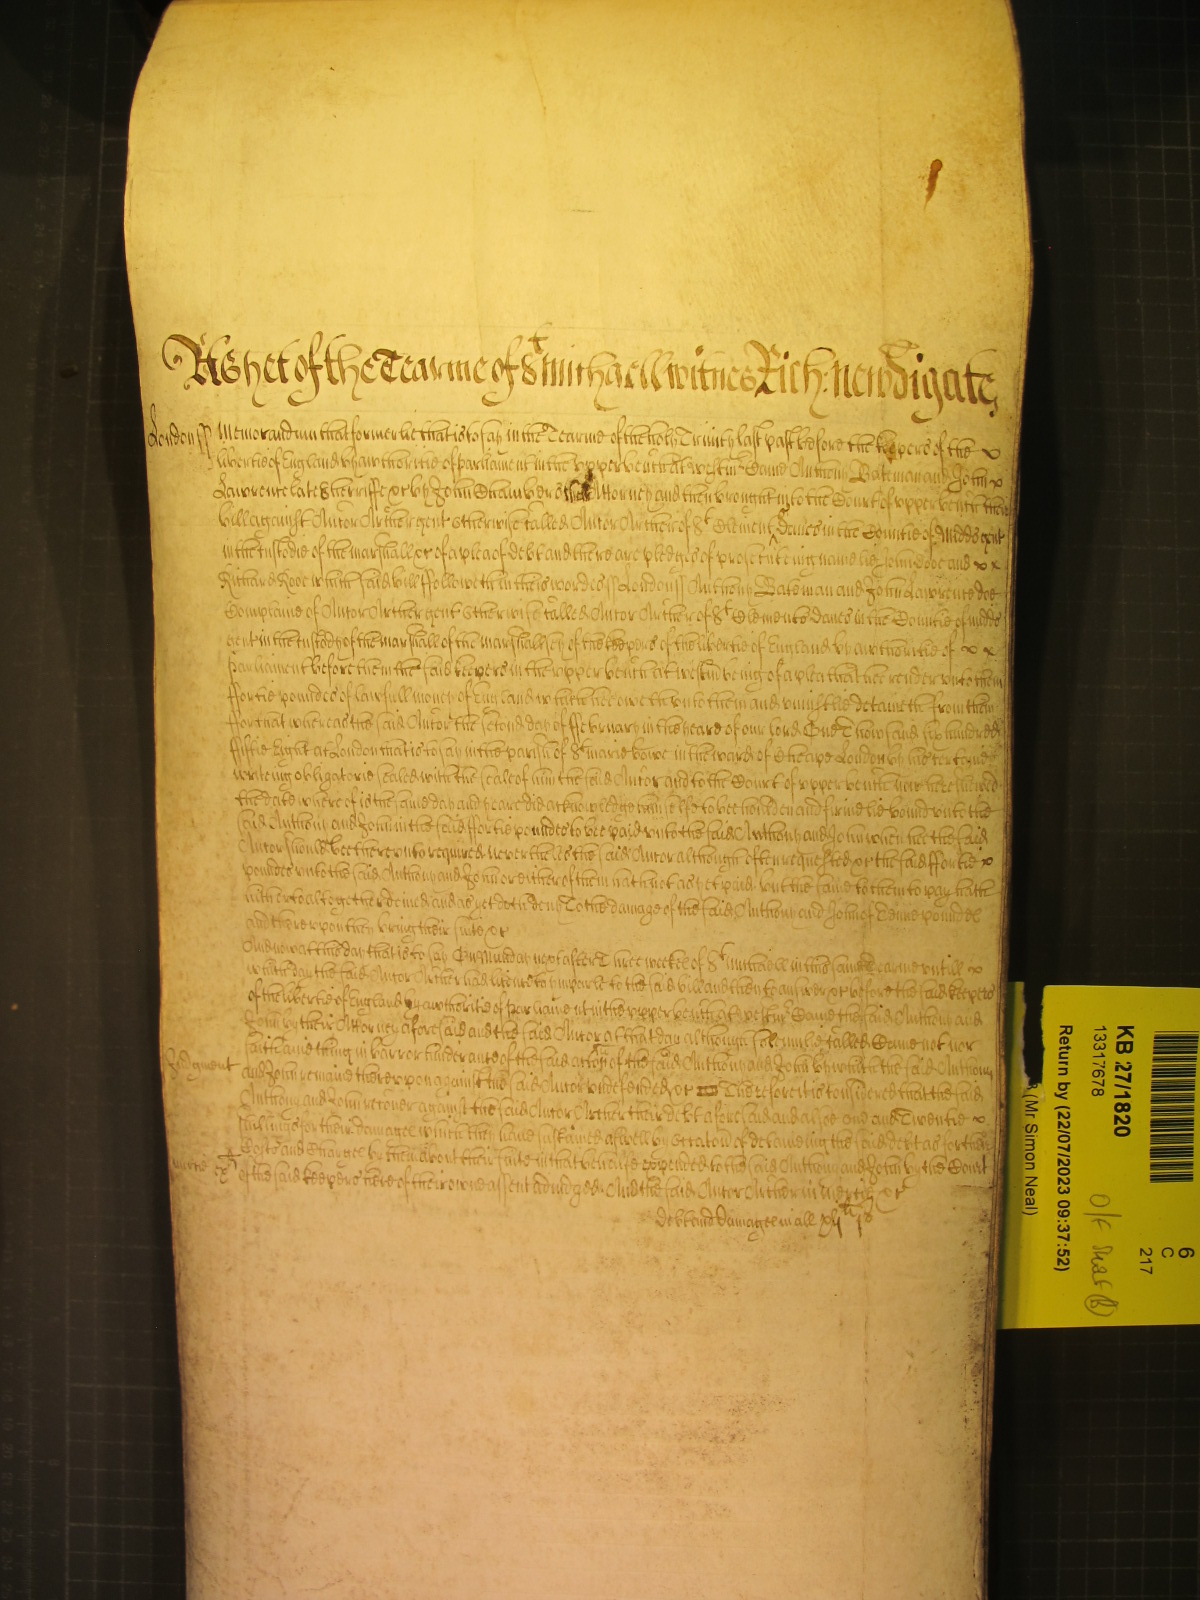 As yet of the Tearme of St Michaell witnes Rich: Newdigate
London ss Memorandum that formerlie that is to say in the Tearme of the holy Trinity last past before the keepers of the
libertie of England by authoritie of parliament in the upper bench at Westmr Came Anthony Bateman and John
Lawrence late Sherriffe &c by John Chambers their Attorney and then brought into the Court of upper bench there
bill against Antor Arther gent otherwise called Antor Arther of St Clement Danes in the Countie of Midds gent
in the Custodie of the marshall &c of a plea of debt and there are pledges of prosecuteing namelie John Doe and
Richard Rooe which said bill followeth in theis wordes ss London ss Anthony Bateman and John Lawrence doe
Complaine of Antor Arther gent otherwise called Antor Arther of St Clements Danes in the Countie of midds
gent in the Custody of the marshall of the marshallsey of the keepers of the libertie of England by authoritie of
Parliament before them the said keepers in the upper bench at westmr being of a plea that hee render unto them
ffortie poundes of lawfull money of England which hee owe them to them and uniustlie detaineth from them
ffor that whereas the said Antor the second day of ffebruary in the yeare of our lord One Thowsand six hundred
fiftie Eight at London that is to say in the parish of St marie bowe in the ward of Cheape London by his certeine
writeing obligatorie sealed with the seale of him the said Antor and to the Court of upper bench now here shewed
the date whereof is the same day and yeare did acknowledge himselfe to bee houlden and firmelie bound unto the
said Anthony and John in the said ffortie poundes to bee paid unto the said Anthony and John when hee the said
Antor should bee thereunto required Neverthelesse the said Antor although often requested &c the said ffortie
poundes unto the said Anthony and John or either of them hath not as yet paid but the same to them to pay hath
hitherto altogether denied and as yet doth deny To the damage of the said Anthony and John of Tenne poundes
and thereupon they bring their suite &c
And now at this day that is to say On Munday next after Three weekes of St Michaell in this same Tearme untill
which day the said Antor Arther had licence to imparle to the said bill and then to answer &c before the said keepers
of the libertie of England by authoritie of Parliament in the upper bench at westmr Came the said Anthony and
John by their Attorney aforesaid and the said Antor at that day although solemnlie called Came not nor
saith any thing in barr or hinderance of the said accon of the said Anthony and John by which the said Anthony
Judgment and John remaine thereupon against the said Antor undefended &c Therefore it is considered that the said
Anthony and John recover against the said Antor Arther their debt aforesaid and alsoe One and Twentie
shillings for their damages which they have sustained aswell by occasion of detaineing the said debt as for their
Costs and Charges by them about their suite in that behalfe expended to the said Anthony and John by the Court
mercie of the said keepers here of their owne assent adiudged And the said Antor Arther in mercy &c
debt and damages in all xlili js
KB 27/1820
13317678
Return by (22/07/2023 09:37:52)
(Mr Simon Neal)
6
C
217